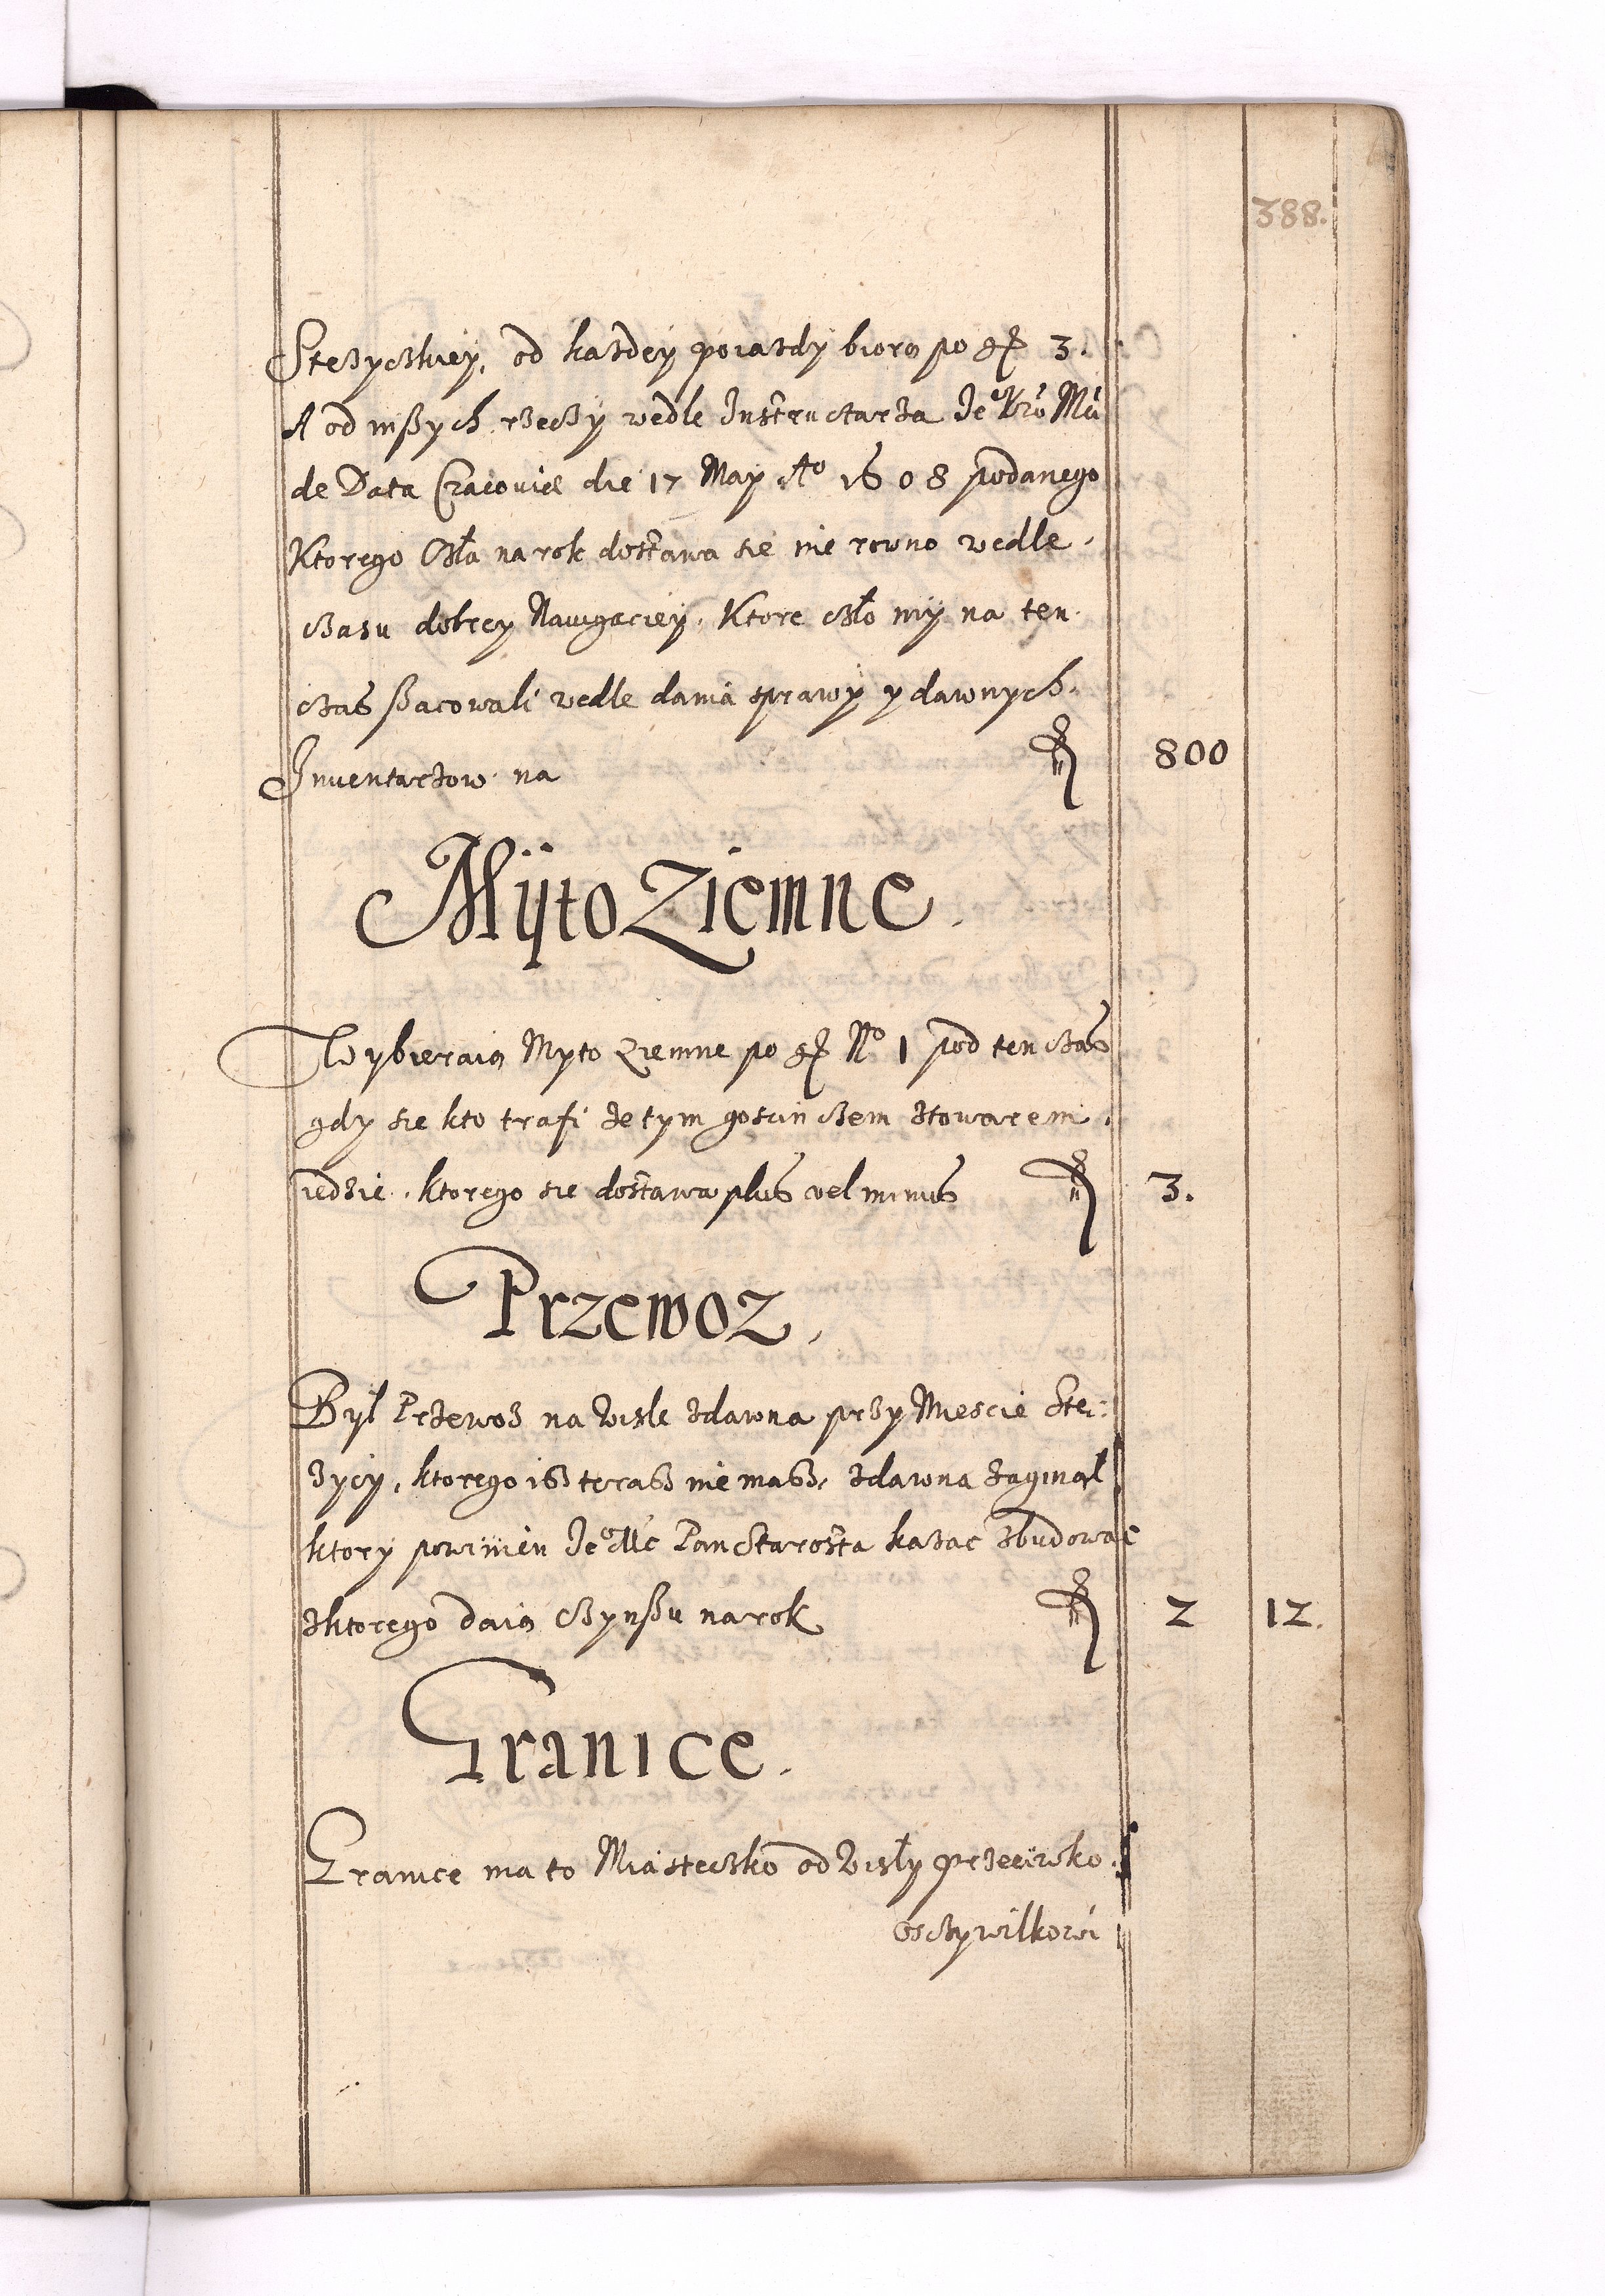 388.
Stezyczkiey, od kazdey poiazdy biorą po gr 3.
A od inßych rzeczy wedle Instructarza Je° Kró Mći
de Data Cracoviæ die 17 Maÿ A° 1608 podanego
Ktorego Cła na rok dostawa sie nie rowno wedle
czasu dobrey Nawigaciey. Ktore cło mÿ na ten
czas ßacowali wedle dania sprawÿ y dawnych
Inwentarzow na fl 800
Mÿto Ziemne.
Wybieraią Myto Ziemne po gr N° 1 pod ten czas
gdy sie kto trafi ze tym goscinczem ztowarem
iedzie. ktorego sie dostawa plus vel minus fl 3.
Przewoz.
Był Przewoz na Wisle zdawna przy Miescie Ste:
zycy, ktorego isz terasz nie masz, zdawna zaginął
ktory powinien Je° Mć Pan Starosta kazac zbudowac
zktorego daią czynßu na rok fl 2 12.
Granice.
Granice ma to Miasteczko od Wisły przeciwko
osczywilkowi